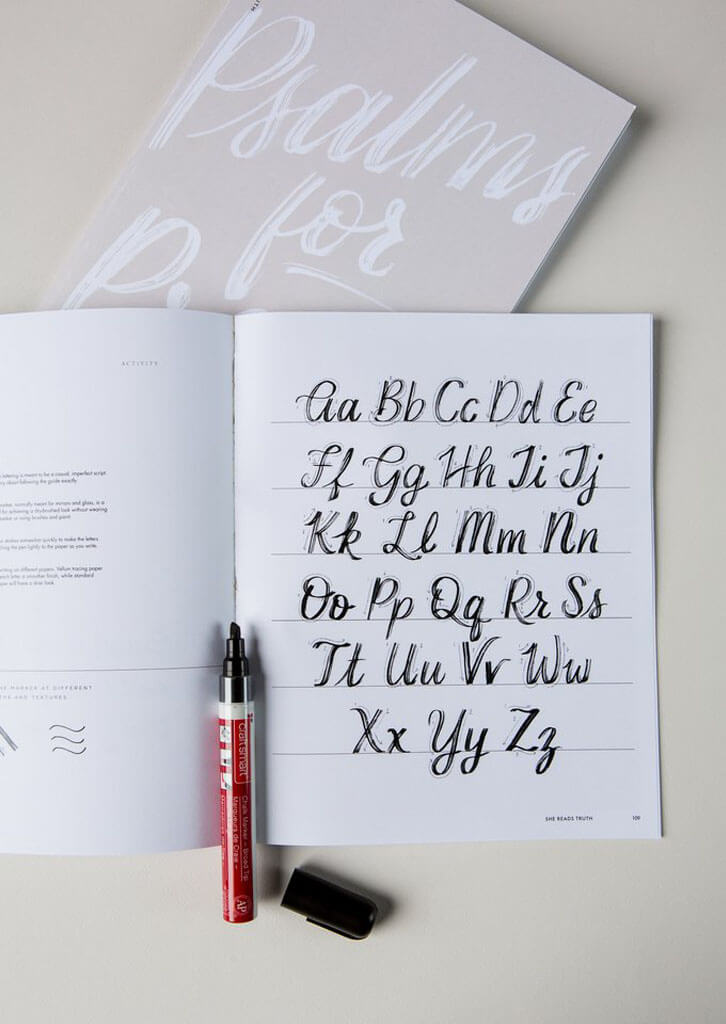 Psalms
for
ACTIVITY
lettering is meant to be a casual, imperfect script.
about following the guide exactly.
normally meant for mirrors and glass, is a
for achieving a drybrushed look without wearing
or using brushes and paint.
strokes somewhat quickly to make the letters.
the pen lightly to the paper as you write.
on different papers. Vellum tracing paper
letter a smoother finish, while standard
will have a drier look.
MARKER AT DIFFERENT
AND TEXTURES.
Aa Bb Cc Dd Ee
Ff Gg Hh Ii Jj
Kk Ll Mm Nn
Oo Pp Qq Rr Ss
Tt Uu Vv Ww
Xx Yy Zz
SHE READS TRUTH 109
craftsmart
Chalk Marker – Broad Tip
Marqueurs de Craie –
AP